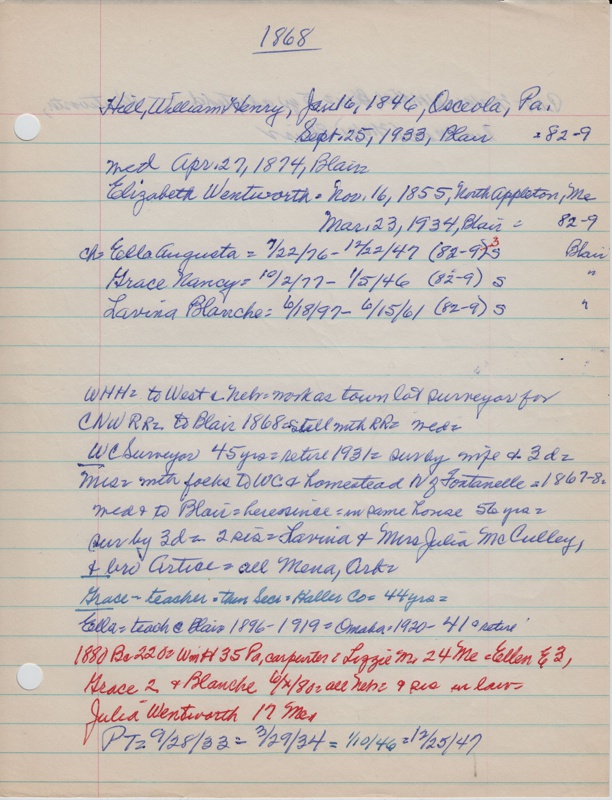 1868
Hill, William Henry, Jan 16, 1846, Osceola, Pa.
Sept. 25, 1933, Blair = 82-9
med Apr. 27, 1874, Blair=
Elizabeth Wentworth = Nov. 16, 1855, North Appleton, Me
Mar. 23, 1934, Blair = 82-9
ch= Ella Augusta = 7/22/76 - 12/22/47 (82-9) s 3 Blair
Grace Nancy = 10/2/77 - 1/5/46 (82-9) s "
Lavina Blanche = 6/18/97 - 6/15/61 (82-9) s "
WHH= to West & Nebr= work as town lot surveyor for
CNW RR= to Blair 1868= still with RR= med=
WC Surveyor 45 yrs= retire 1931= surv by wife & 3 d=
Mrs= wth folks to WC & homestead N Fontanelle = 1867-8=
med & to Blair= here since= in same house 56 yrs=
sur by 3d= 2 sis= Lavina & Mrs Julia McCulley,
& bro Artise= all Mena, Ark=
Grace - teacher = then Secr = Haller Co= 44 yrs=
Ella= teach c Blair 1896-1919= Omaha= 1920-41= retire
1880 B= 220= Wm H 35 Pa, carpenter & Lizzie M. 24 Me = Ellen E 3,
Grace 2 & Blanche 6/ /80= all Nebr= & sis in law=
Julia Wentworth 17 Me,
PT= 9/28/33 = 3/29/34 = 1/10/46 = 12/25/47